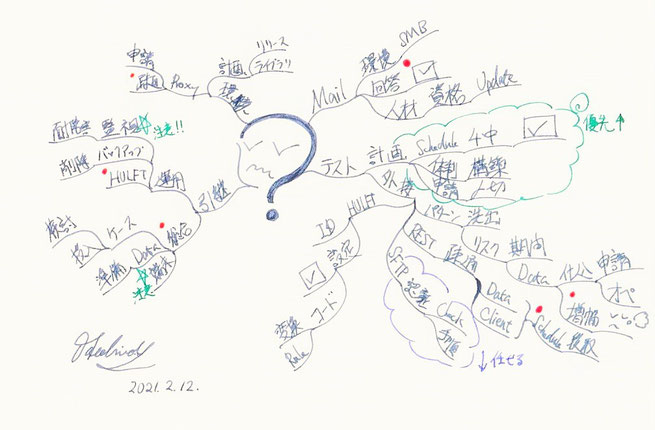 リリース
計画 ライブラリ
環境
申請
Proxy
Mail
環境 SMB
回答
人材 資格 Update
テスト
計画 Schedule 4中
体制 構築
申請 〆切
優先↑
監視 注意!!
削除 バックアップ
HULFT 運用
引継
検討
投入 ケース
準備 Data
注意
HULFT
ID
設定
変換 コード
Rule
パターン 洗出
REST 疎通
リスク 期間
Data 仕込 申請
オペ
増幅
Data
Client
Schedule 複数
SFTP 認証
Check
手順
↓任せる
2021.2.12.